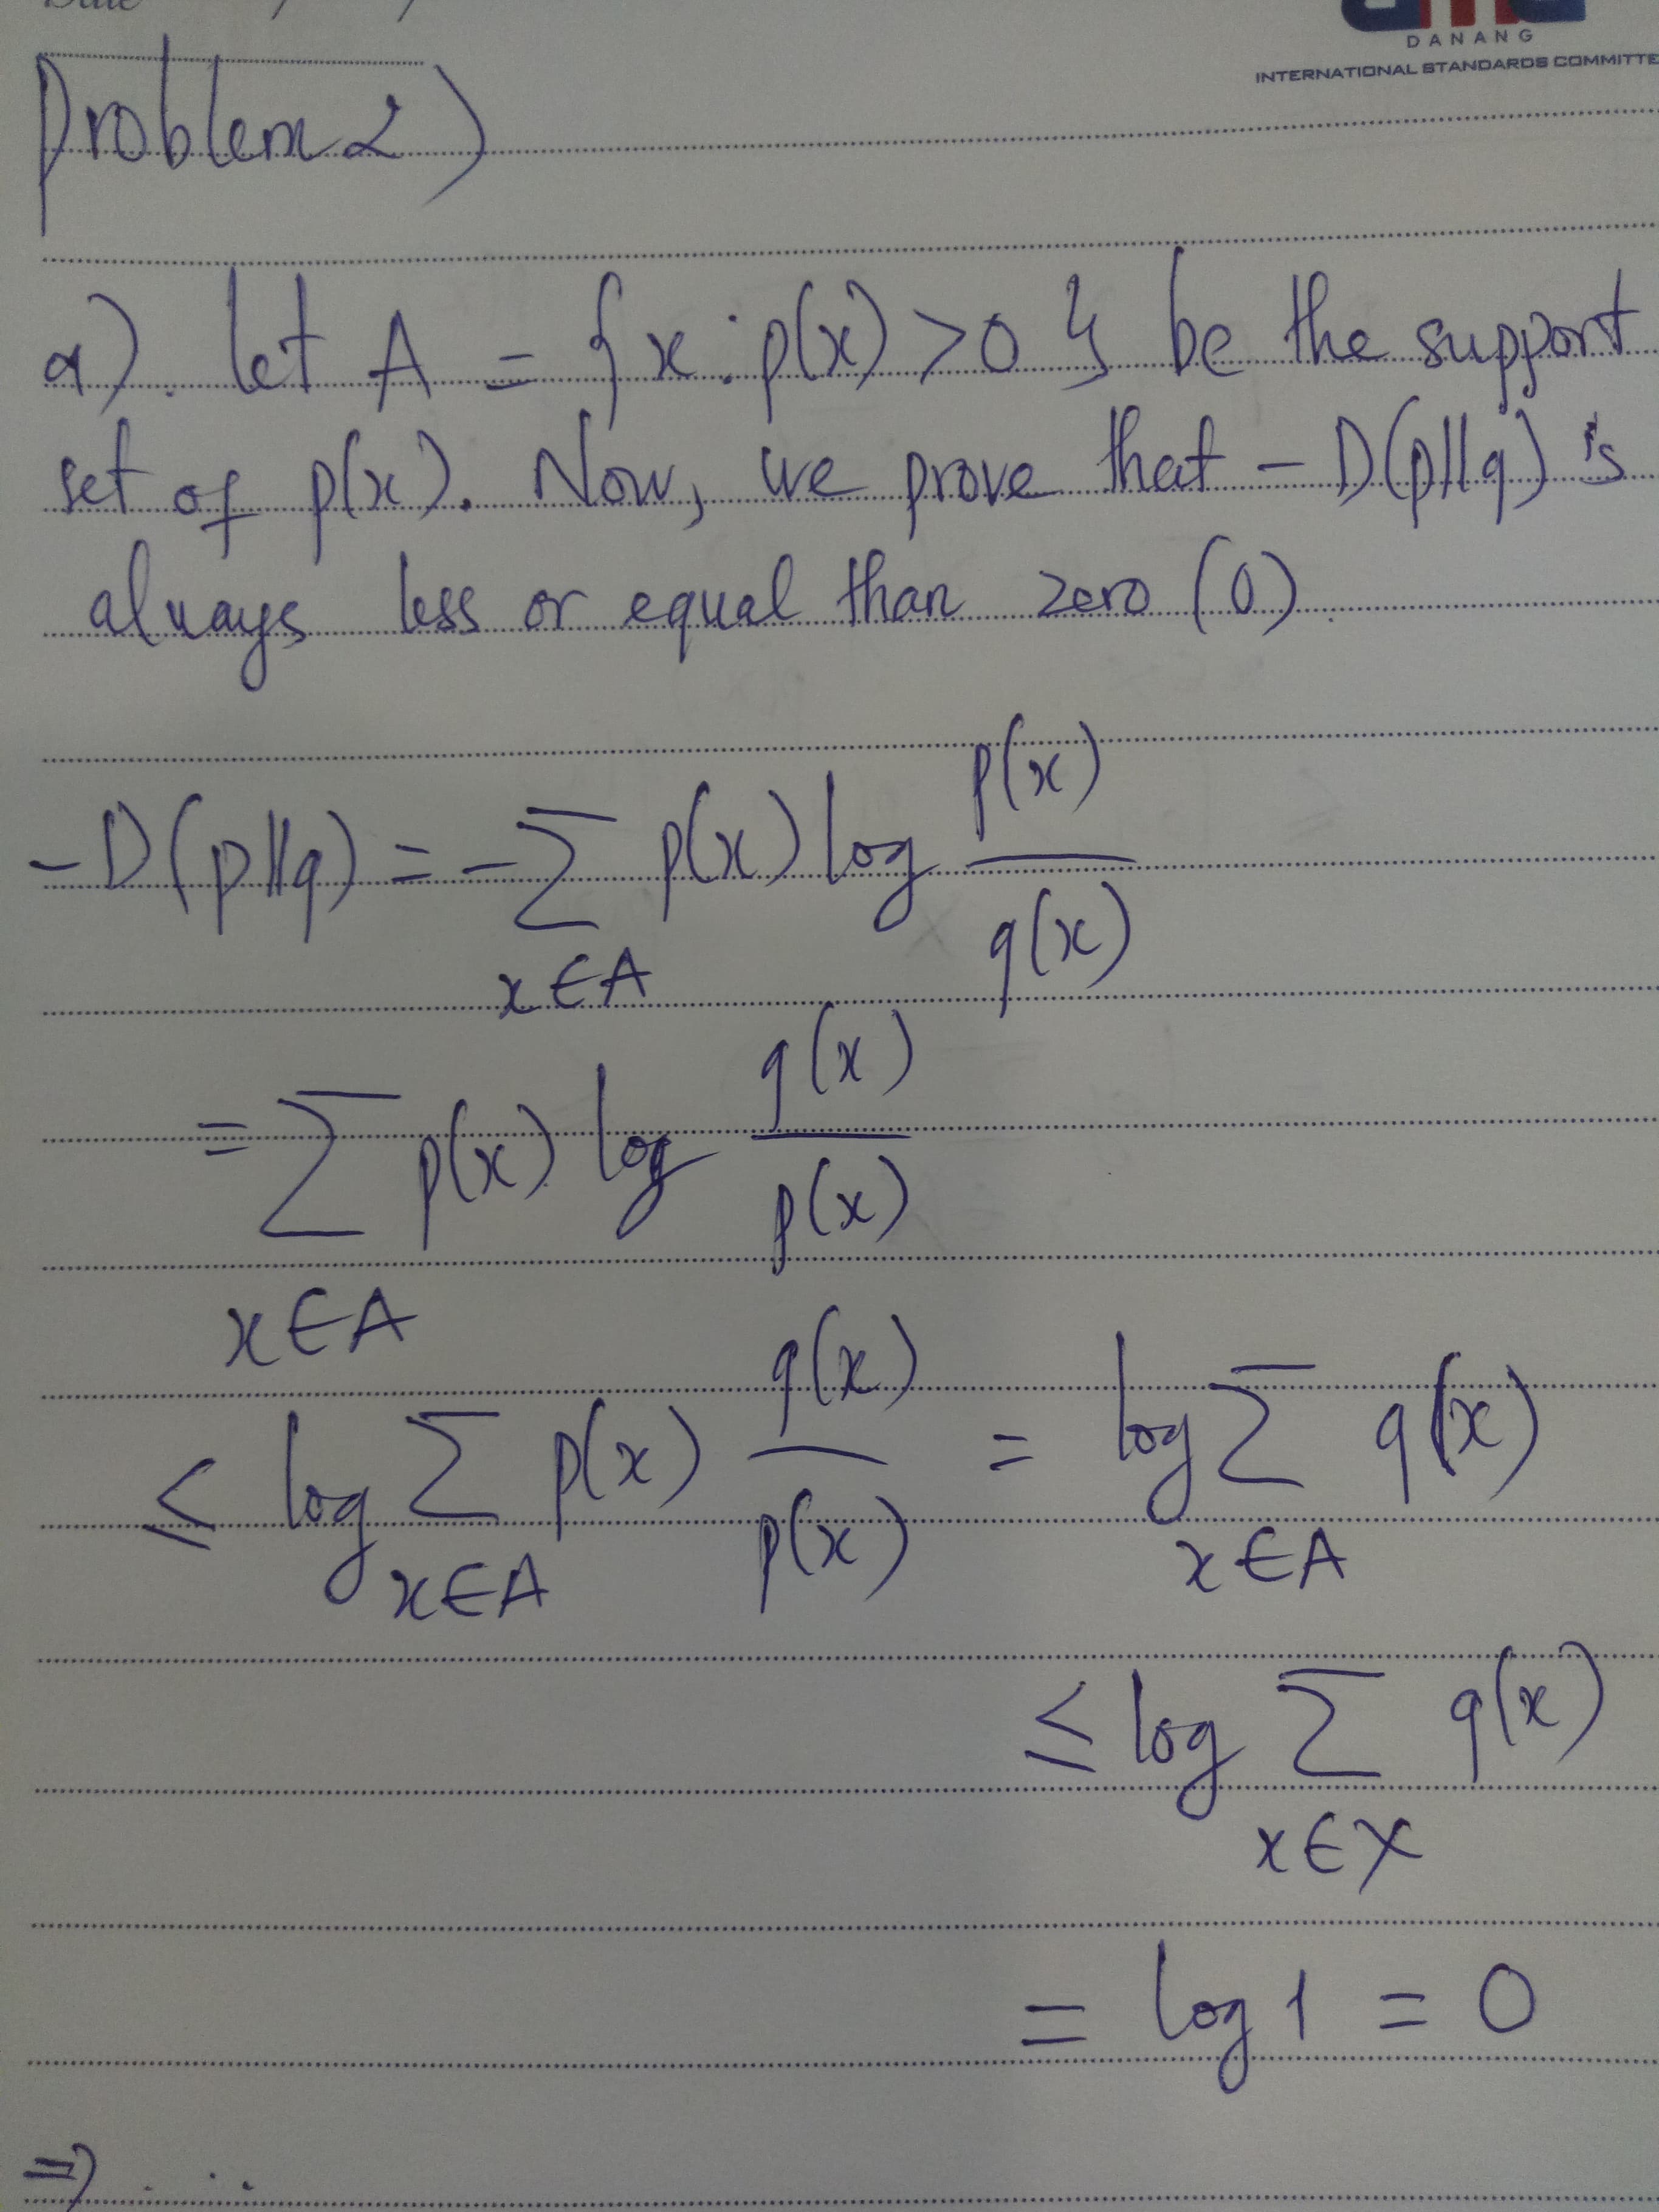 Date / /
DANANG
INTERNATIONAL STANDARDS COMMITTE
Problem 2)
a). Let A = {x : p(x) > 0} be the support
set of p(x). Now, we prove that - D(p||q) is
always less or equal than zero (0).
-D(p||q) = - ∑ p(x) log p(x) / q(x)
x ∈ A
= ∑ p(x) log q(x) / p(x)
x ∈ A
≤ log ∑ p(x) q(x) / p(x) = log ∑ q(x)
x ∈ A x ∈ A
≤ log ∑ q(x)
x ∈ X
= log 1 = 0
⇒